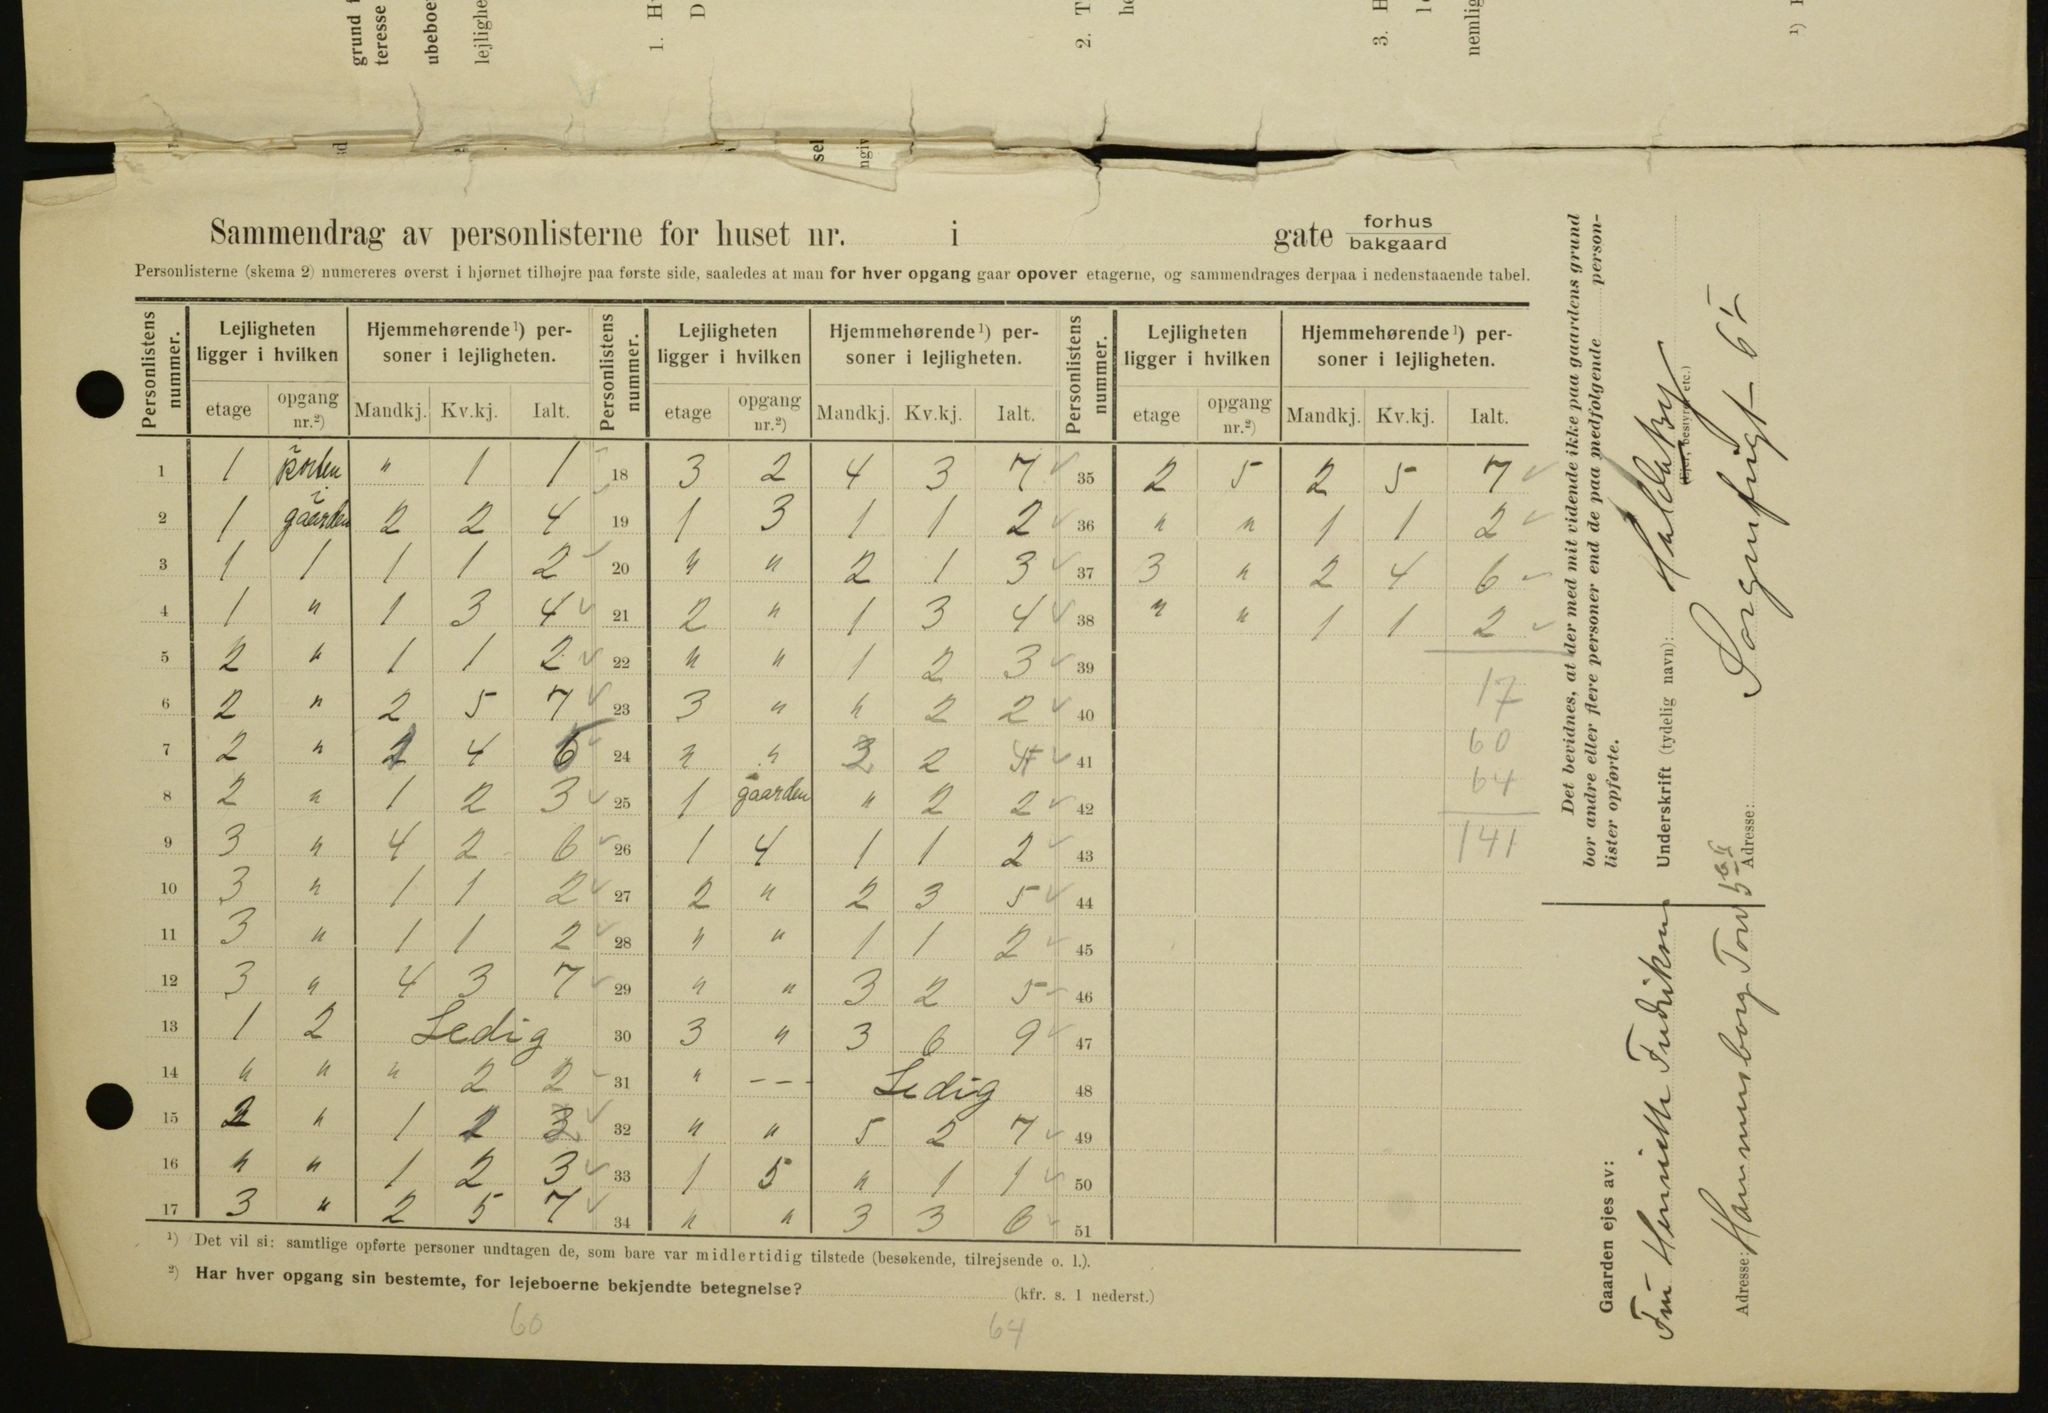 grund
teresse
ubeboe
lejlighe
1. H
D
2. T
he
3. H
nemlig
¹)
Sammendrag av personlisterne for huset nr. i gate forhus
bakgaard
Personlisterne (skema 2) numereres øverst i hjørnet tilhøjre paa første side, saaledes at man for hver opgang gaar opover etagerne, og sammendrages derpaa i nedenstaaende tabel.
Personlistens nummer. | Lejligheten ligger i hvilken | Hjemmehørende¹) personer i lejligheten. | Personlistens nummer. | Lejligheten ligger i hvilken | Hjemmehørende¹) personer i lejligheten. | Personlistens nummer. | Lejligheten ligger i hvilken | Hjemmehørende¹) personer i lejligheten.
etage | opgang nr.²) | Mandkj. | Kv.kj. | Ialt. | etage | opgang nr.²) | Mandkj. | Kv.kj. | Ialt. | etage | opgang nr.²) | Mandkj. | Kv.kj. | Ialt.
1 | 1 | i porten | " | 1 | 1 | 18 | 3 | 2 | 4 | 3 | 7 | 35 | 2 | 5 | 2 | 5 | 7
2 | 1 | i gaarden | 2 | 2 | 4 | 19 | 1 | 3 | 1 | 1 | 2 | 36 | " | " | 1 | 1 | 2
3 | 1 | 1 | 1 | 1 | 2 | 20 | " | " | 2 | 1 | 3 | 37 | 3 | " | 2 | 4 | 6
4 | 1 | " | 1 | 3 | 4 | 21 | 2 | " | 1 | 3 | 4 | 38 | " | " | 1 | 1 | 2
5 | 2 | " | 1 | 1 | 2 | 22 | " | " | 1 | 2 | 3 | 39 | 17
6 | 2 | " | 2 | 5 | 7 | 23 | 3 | " | " | 2 | 2 | 40 | 60
7 | 2 | " | 4 | 24 | " | " | 2 | 41 | 64
8 | 2 | " | 1 | 2 | 3 | 25 | 1 | gaarden | " | 2 | 2 | 42 | 141
9 | 3 | " | 4 | 2 | 6 | 26 | 1 | 4 | 1 | 1 | 2 | 43
10 | 3 | " | 1 | 1 | 2 | 27 | 2 | " | 2 | 3 | 5 | 44
11 | 3 | " | 1 | 1 | 2 | 28 | " | " | 1 | 1 | 2 | 45
12 | 3 | " | 4 | 3 | 7 | 29 | " | " | 3 | 2 | 5 | 46
13 | 1 | 2 | Ledig | 30 | 3 | " | 3 | 6 | 9 | 47
14 | " | " | " | 2 | 2 | 31 | " | - - - | Ledig | 48
15 | 2 | " | 1 | 32 | " | " | 5 | 2 | 7 | 49
16 | " | " | 1 | 2 | 3 | 33 | 1 | 5 | " | 1 | 1 | 50
17 | 3 | " | 2 | 5 | 7 | 34 | " | " | 3 | 3 | 6 | 51
¹) Det vil si: samtlige opførte personer undtagen de, som bare var midlertidig tilstede (besøkende, tilrejsende o. l.).
²) Har hver opgang sin bestemte, for lejeboerne bekjendte betegnelse? (kfr. s. 1 nederst.)
60 64
Det bevidnes, at der med mit vidende ikke paa gaardens grund
bor andre eller flere personer end de paa medfølgende person-
lister opførte.
Underskrift (tydelig navn):
(Ejer, bestyrer etc.)
Adresse: Sorgenfrigt 6
Gaarden ejes av:
Fru Henriette Fredriksen
Adresse: Hammersborg Torv 5